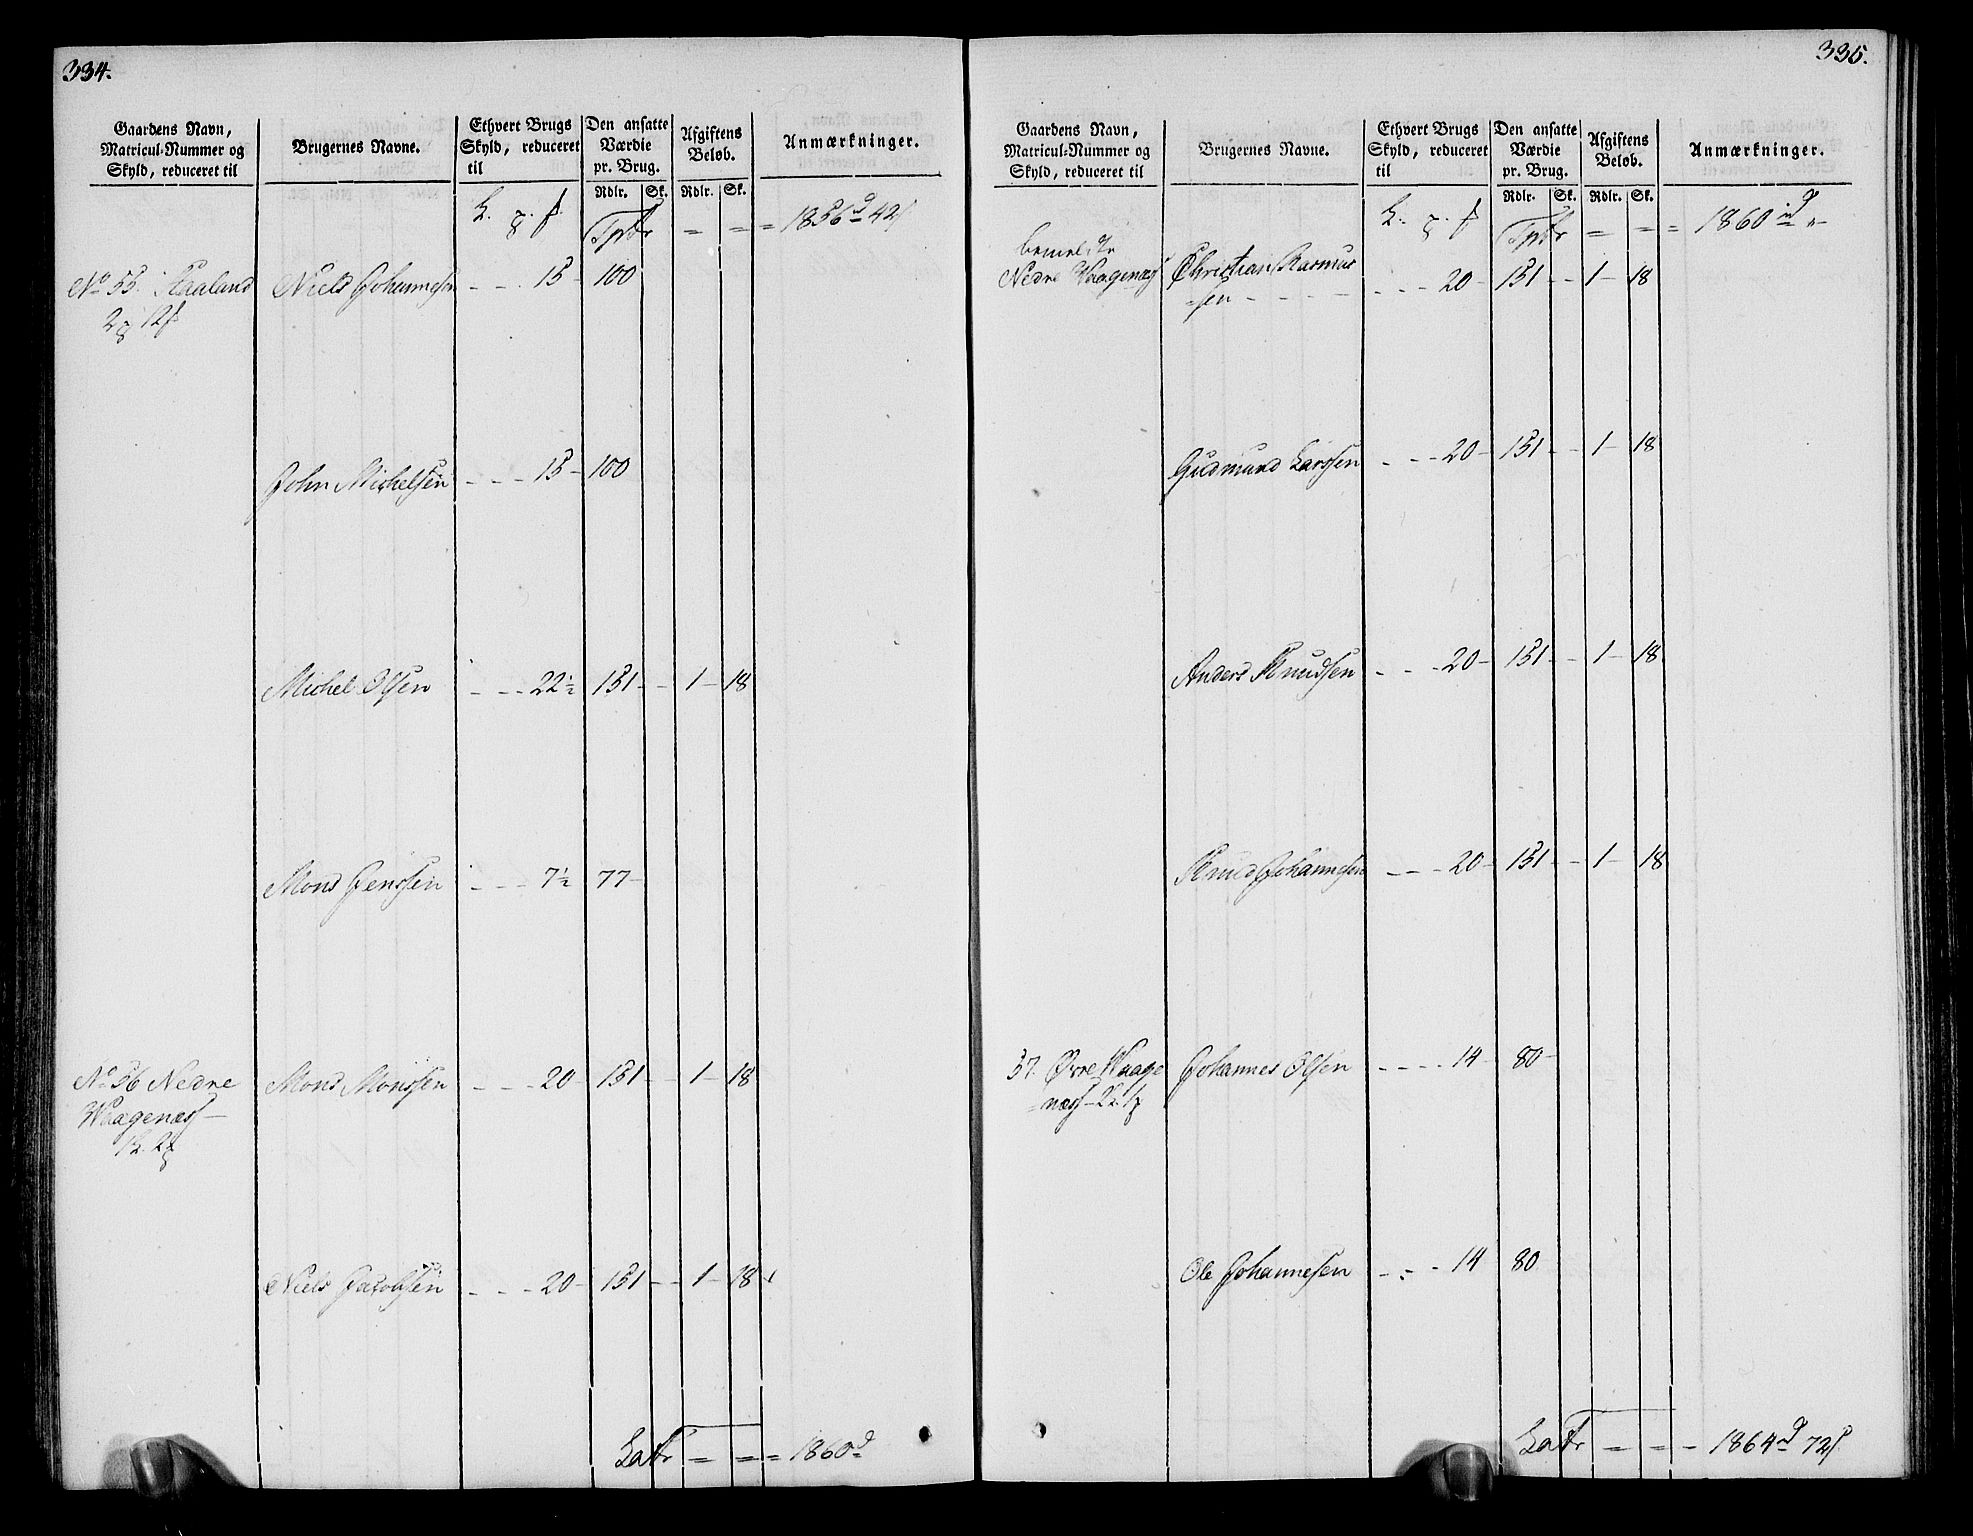 334.
Gaardens Navn,
Matricul-Nummer og
Skyld, reduceret til
Brugernes Navne.
Ethvert Brugs
Skyld, reduceret
til
Den ansatte
Værdie
pr. Brug.
Afgiftens
Beløb.
Anmærkninger.
Rdlr. Sk. Rdlr. Sk.
Tptr = = = 1856 42
No 55. Kaaland Niels Johannesen - - - 15 - 100
2 12
John Michelsen - - - 15 - 100
Michel Olsen - - - 22½ 151 - - 1 - 18
Mons Jenssen - - - 7½ 77 -
No 56 Nedre Mons Monssen - - - 20 - 151 - - 1 - 18
Waagenæs -
Niels Jacobsen - - - 20 - 151 - - 1 - 18
Latr = = = 1860
335.
Gaardens Navn,
Matricul-Nummer og
Skyld, reduceret til
Brugernes Navne.
Ethvert Brugs
Skyld, reduceret
til
Den ansatte
Værdie
pr. Brug.
Afgiftens
Beløb.
Anmærkninger.
Rdlr. Sk. Rdlr. Sk.
Tptr = = = 1860
bemeldte
Nedre Waagenæs Christian Rasmus
=sen - - - - - - - 20 - 151 - - 1 - 18
Gudmund Larssen - - - 20 - 151 - - 1 - 18
Anders Knudsen - - - 20 - 151 - - 1 - 18
Knud Johannesen - - - 20 - 151 - - 1 - 18
57. Øvre Waage Johannes Olsen - - - - 14 - 80 -
=næs - 2
Ole Johannesen - - - 14 80
Latr = = - 1864 72